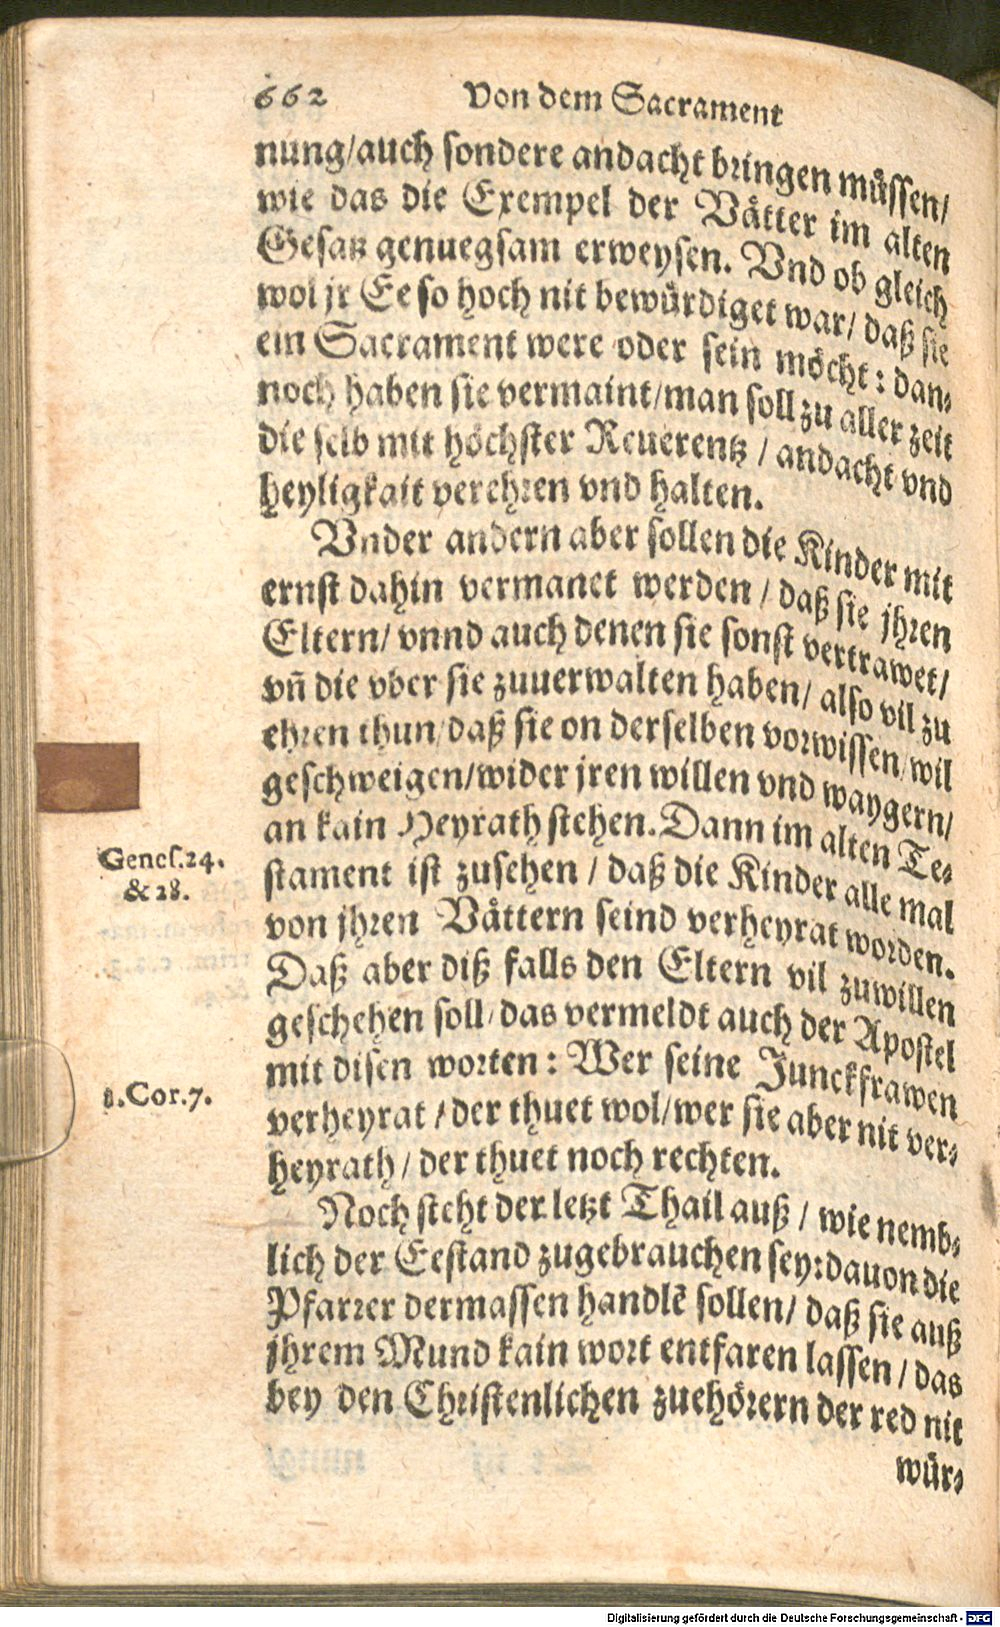 662 Von dem Sacrament
nung/auch sondere andacht bringen müssen/
wie das die Exempel der Vätter im alten
Gesatz genuegsam erweysen. Vnd ob gleich
wol jr Ee so hoch nit bewürdiget war/ daß sie
ein Sacrament were oder sein möcht: dan-
noch haben sie vermaint/man soll zu aller zeit
die selb mit höchster Reuerentz / andacht vnd
heyligkait verehren vnd halten.
Vnder andern aber sollen die Kinder mit
ernst dahin vermanet werden / daß sie jhren
Eltern/ vnnd auch denen sie sonst vertrawet/
vñ die vber sie zuuerwalten haben/ also vil zu
ehren thun/daß sie on derselben vorwissen/wil
geschweigen/wider jren willen vnd waygern/
an kain Heyrath stehen. Dann im alten Te-
stament ist zusehen / daß die Kinder alle mal
von jhren Vättern seind verheyrat worden.
Daß aber diß falls den Eltern vil zuwillen
geschehen soll/das vermeldt auch der Apostel
mit disen worten: Wer seine Junckfrawen
verheyrat / der thuet wol/wer sie aber nit ver-
heyrath/ der thuet noch rechten.
Noch steht der letzt Thail auß / wie nemb-
lich der Eestand zugebrauchen sey:dauon die
Pfarrer dermassen handlē sollen/ daß sie auß
jhrem Mund kain wort entfaren lassen / das
bey den Christenlichen zuehörern der red nit
wür-
Genes.24.
& 28.
1.Cor.7.
Digitalisierung gefördert durch die Deutsche Forschungsgemeinschaft - DFG